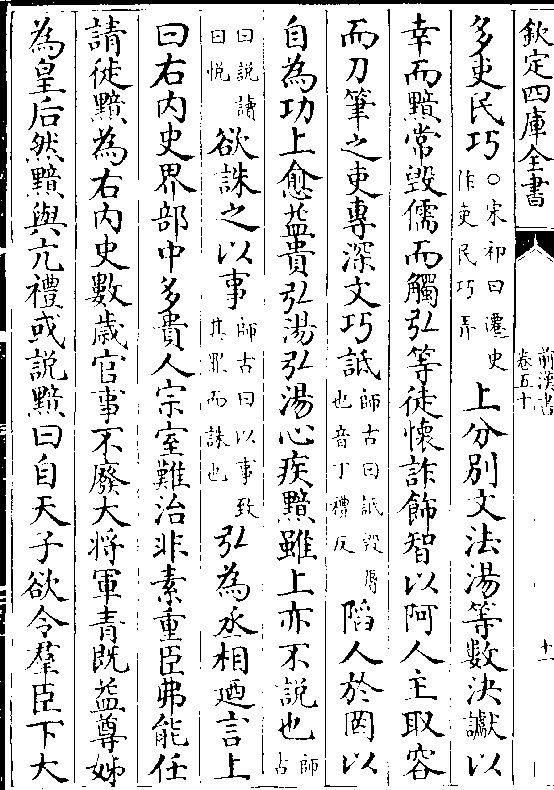 欽定四庫全書
前漢書
卷五十
十一
多吏民巧○宋祁曰遷史作吏民巧弄上分別文法湯等數決讞以
幸而黯常毀儒而觸弘等徒懷詐飾智以阿人主取容
而刀筆之吏專深文巧詆師古曰詆毀辱也音丁禮反陷人於罔以
自為功上愈益貴弘湯弘湯心疾黯雖上亦不說也師古
曰說讀曰悅欲誅之以事師古曰以事致其罪而誅也弘為丞相廼言上
曰右內史界部中多貴人宗室難治非素重臣弗能任
請徙黯為右內史數歲官事不廢大將軍青既益尊姊
為皇后然黯與亢禮或說黯曰自天子欲令羣臣下大